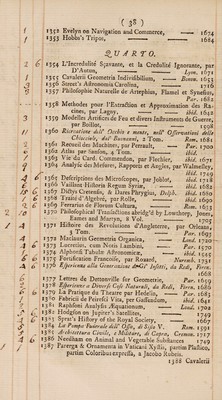 ( 38 )
1352 Evelyn on Navigation and Commerce, — 1674
1353 Hobbs's Tripos, — 1684
QUARTO.
1354 L'Incredulité Sçavante, et la Credulité Ignorante, par
D'Auton, Lyon. 1671
1355 Cavalerii Geometria Indivisibilium, Bonon. 1653
1356 Street's Astronomia Carolina, — 1716
1357 Philosophie Naturelle de Artephius, Flamel et Synesius,
Par.
1358 Methodes pour l'Extraction et Approximation des Racines,
par Lagny, ibid.
1359 Modelles Artifices de Feu et divers Instrumens de Guerre,
par Boillot, 1598
1360 Ricreatione dell' Occhio e mente, nell' Osservatione delle
Chiocciole, dal Buonanni, Rom. 1681
1361 Recueil des Machines, par Perrault, Par. 1700
1362 Atlas par Sanson, 4 Tom. ibid.
1363 Vie du Card. Commendon, par Flechier, ibid.
1364 Analyse des Mesures, Rapports et Angles, par Walmesley,
ibid. 1749
1365 Descriptions des Microscopes, par Joblot, ibid. 1718
1366 Vaillant Historia Regum Syriæ, ibid.
1367 Didys Cretensis, & Dares Phrygius, Delph. ibid. 1680
1368 Traité d'Algebre, par Rolle, ibid. 1690
1369 Ferrarius de Florum Cultura, Rom. 1633
1370 Philosophical Transactions abridg'd by Lowthorp, Jones,
Eames and Martyn, 8 Vol. 1705
1371 Histoire des Revolutions d'Angleterre, par Orleans,
3 Tom. Par. 1693
1372 Maclaurin Geometria Organica, Lond. 1720
1373 Lucretius, cum Notis Lambini, Par. 1570
1374 Clairaut Tabulæ Astronomicæ, ibid.
1375 Fortification Francoise, par Rozard, Nuremb. 1731
1376 Esperienze alla Generazione de Gl' Insetti, da Redi, Firen.
1668
1377 Lettres de Dettonville sur Geometrie, Par. 1659
1378 Esperienze a Diverse Cose Naturali, da Redi, Firen. 1686
1379 La Pratique du Theatre par Hedelin, Par. 1657
1380 Fabricii de Peirescii Vita, per Gassendum, ibid. 1641
1381 Raphsoni Analysis Æquationum, Lond.
1382 Hodgson on Jupiter's Satellites, ibid.
1383 Sprat's History of the Royal Society, ibid. 1667
1384 Le Pompe Funerale dell' Osso, di Sisto V. Rom. 1591
1385 Architectura Civile, e Militare, di Capra, Cremon. 1717
1386 Needham on Animal and Vegetable Substances 1749
1387 Parerga & Ornamenta in Vaticani Xystis, partim Plastico,
partim Coloribus expressa, a Jacobo Rubeis.
1388 Cavalerii